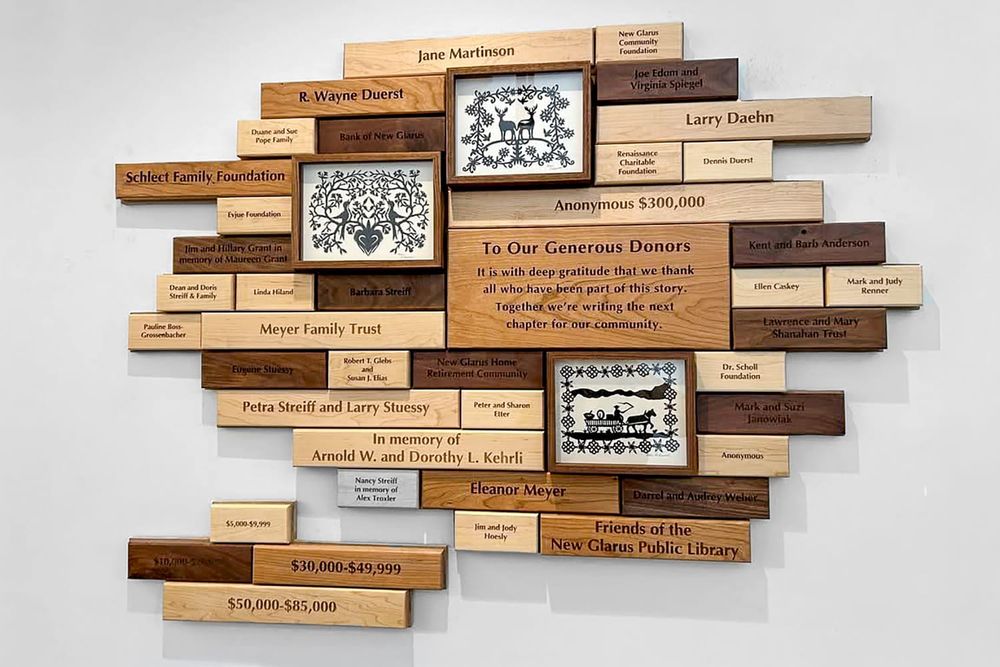 Jane Martinson
New Glarus
Community
Foundation
Joe Edom and
Virginia Spiegel
R. Wayne Duerst
Larry Daehn
Duane and Sue
Pope Family
Bank of New Glarus
Renaissance
Charitable
Foundation
Dennis Duerst
Schlect Family Foundation
Anonymous $300,000
Evjue Foundation
Jim and Hillary Grant in
memory of Maureen Grant
To Our Generous Donors
It is with deep gratitude that we thank
all who have been part of this story.
Together we're writing the next
chapter for our community.
Kent and Barb Anderson
Dean and Doris
Streiff & Family
Linda Hiland
Barbara Streiff
Ellen Caskey
Mark and Judy
Renner
Pauline Boss-
Grossenbacher
Meyer Family Trust
Lawrence and Mary
Shanahan Trust
Eugene Stuessy
Robert T. Glebs
and
Susan J. Elias
New Glarus Home
Retirement Community
Dr. Scholl
Foundation
Petra Streiff and Larry Stuessy
Peter and Sharon
Etter
Mark and Suzi
Janowiak
In memory of
Arnold W. and Dorothy L. Kehrli
Anonymous
Nancy Streiff
in memory of
Alex Troxler
Eleanor Meyer
Darrel and Audrey Weber
Jim and Jody
Hoesly
Friends of the
New Glarus Public Library
$5,000-$9,999
$30,000-$49,999
$50,000-$85,000